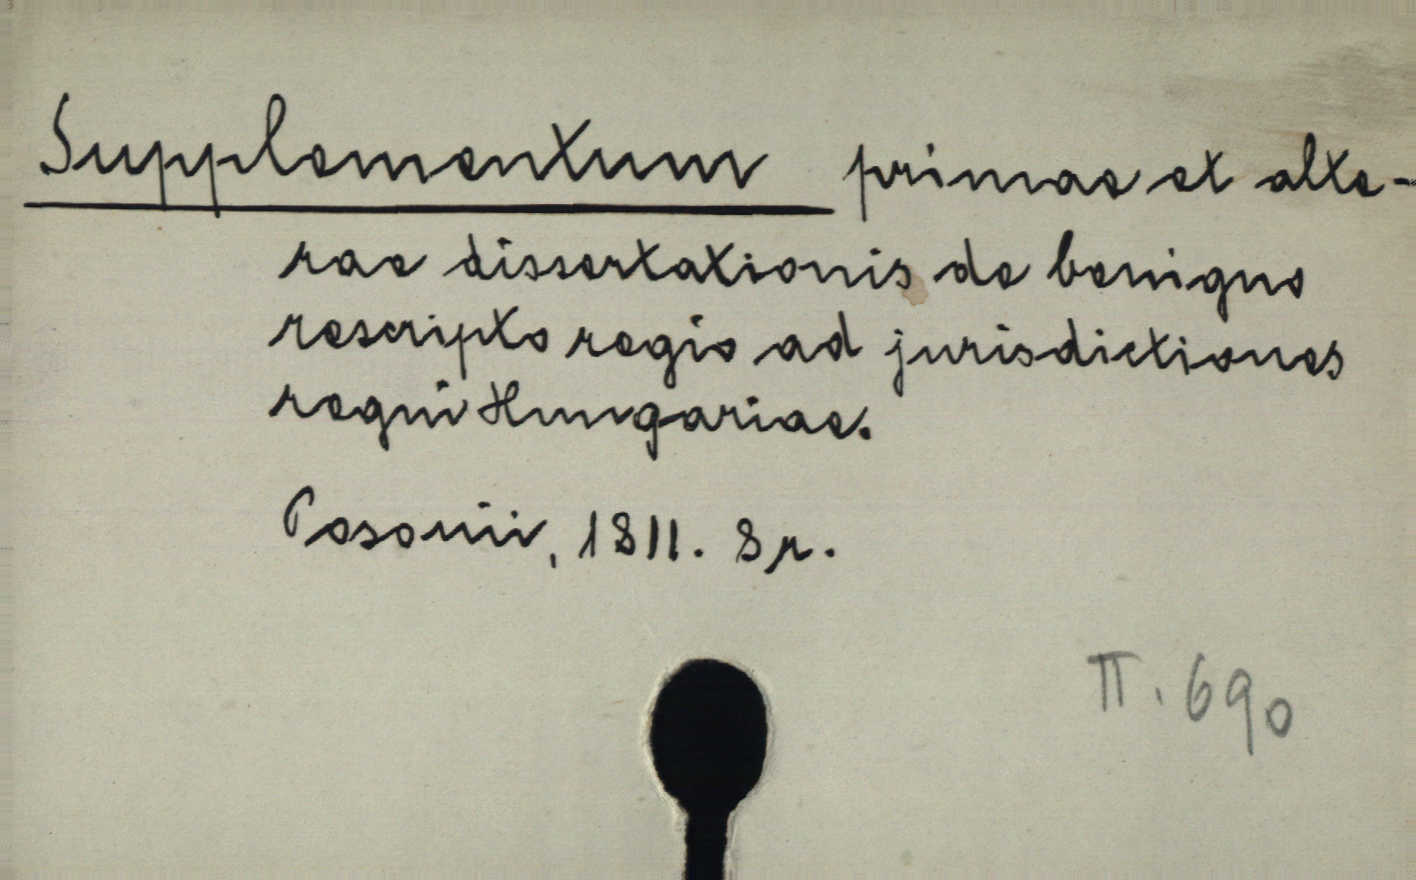 Supplementum primae et alte-
rae dissertationis de benigno
rescripto regio ad jurisdictiones
regni Hungariae.
Posonii, 1811. 8r.
II. 690